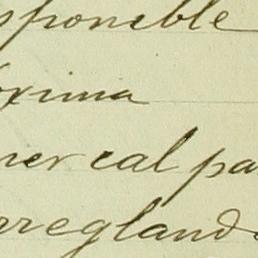 sponeble
oxima
ner cal pa
rreglando